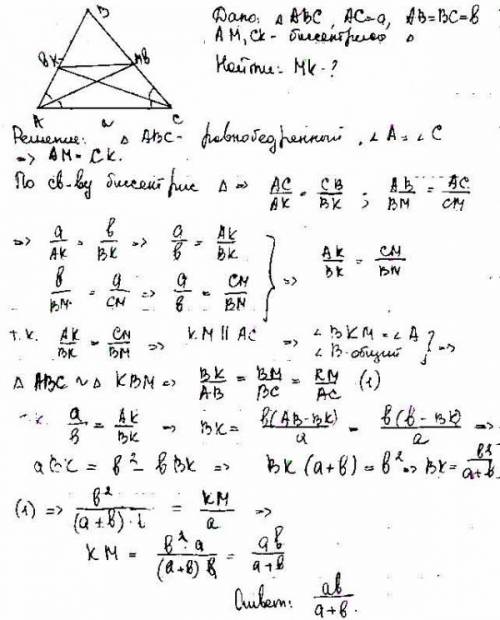 B
Дано: △ ABC, AC=a, AB=BC=b
AM, CK - биссектрисы △
Найти: MK-?
A a C
Решение: △ ABC - равнобедренный, ∠A=∠C
=> AM=CK.
По св-ву биссектрис △ => AC/AK = CB/BK ; AB/BM = AC/CM
=> a/AK = b/BK => a/b = AK/BK
b/BM = a/CM => a/b = CM/BM } => AK/BK = CM/BM
т.к. AK/BK = CM/BM => KM || AC => ∠BKM=∠A
∠B-общий } =>
△ ABC ~ △ KBM => BK/AB = BM/BC = KM/AC (1)
т.к. a/b = AK/BK => BK = b(AB-BK)/a = b(b-BK)/a =>
aBK = b² - bBK => BK(a+b) = b² => BK = b²/a+b
(1) => b²/(a+b)·b = KM/a =>
KM = b²·a/(a+b)b = ab/a+b
Ответ: ab/a+b.